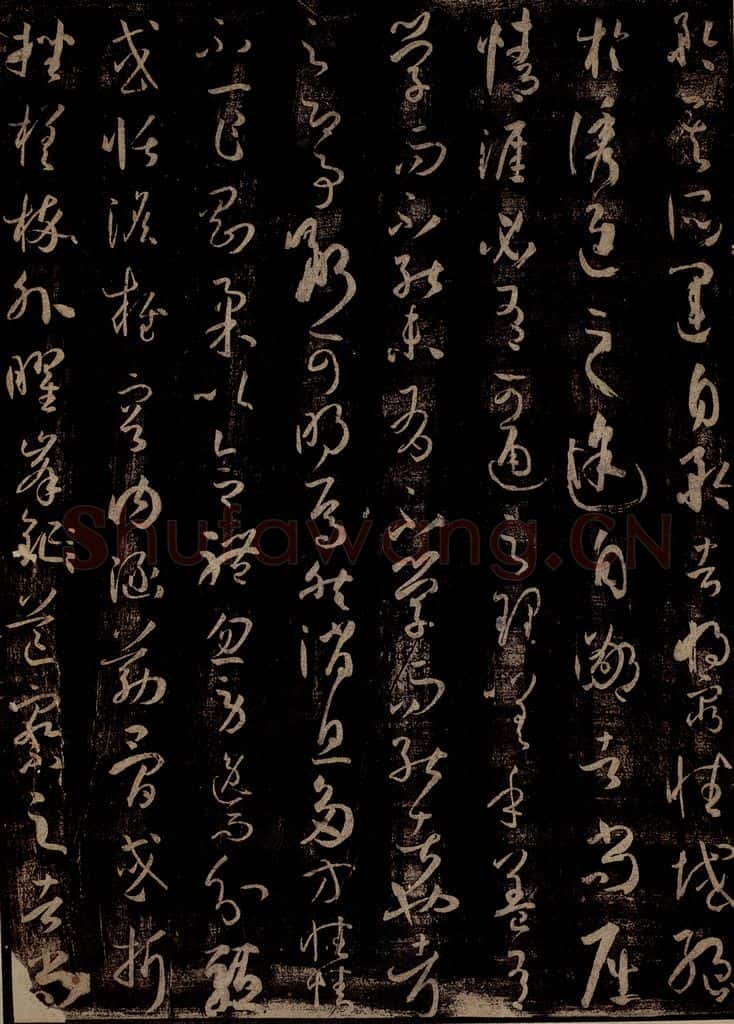 矜其所運自矜者將窮性域絶
於誘進之途自鄙者尚屈
情涯必有可通之理嗟乎蓋有
學而不能未有不學而能者也考
之即事斷可明焉然消息多方性情
不一乍剛柔以合體忽勞逸而分驅
或恬憺雍容內涵筋骨或折
挫槎枿外曜鋒芒察之者尚
Shufawang.CN